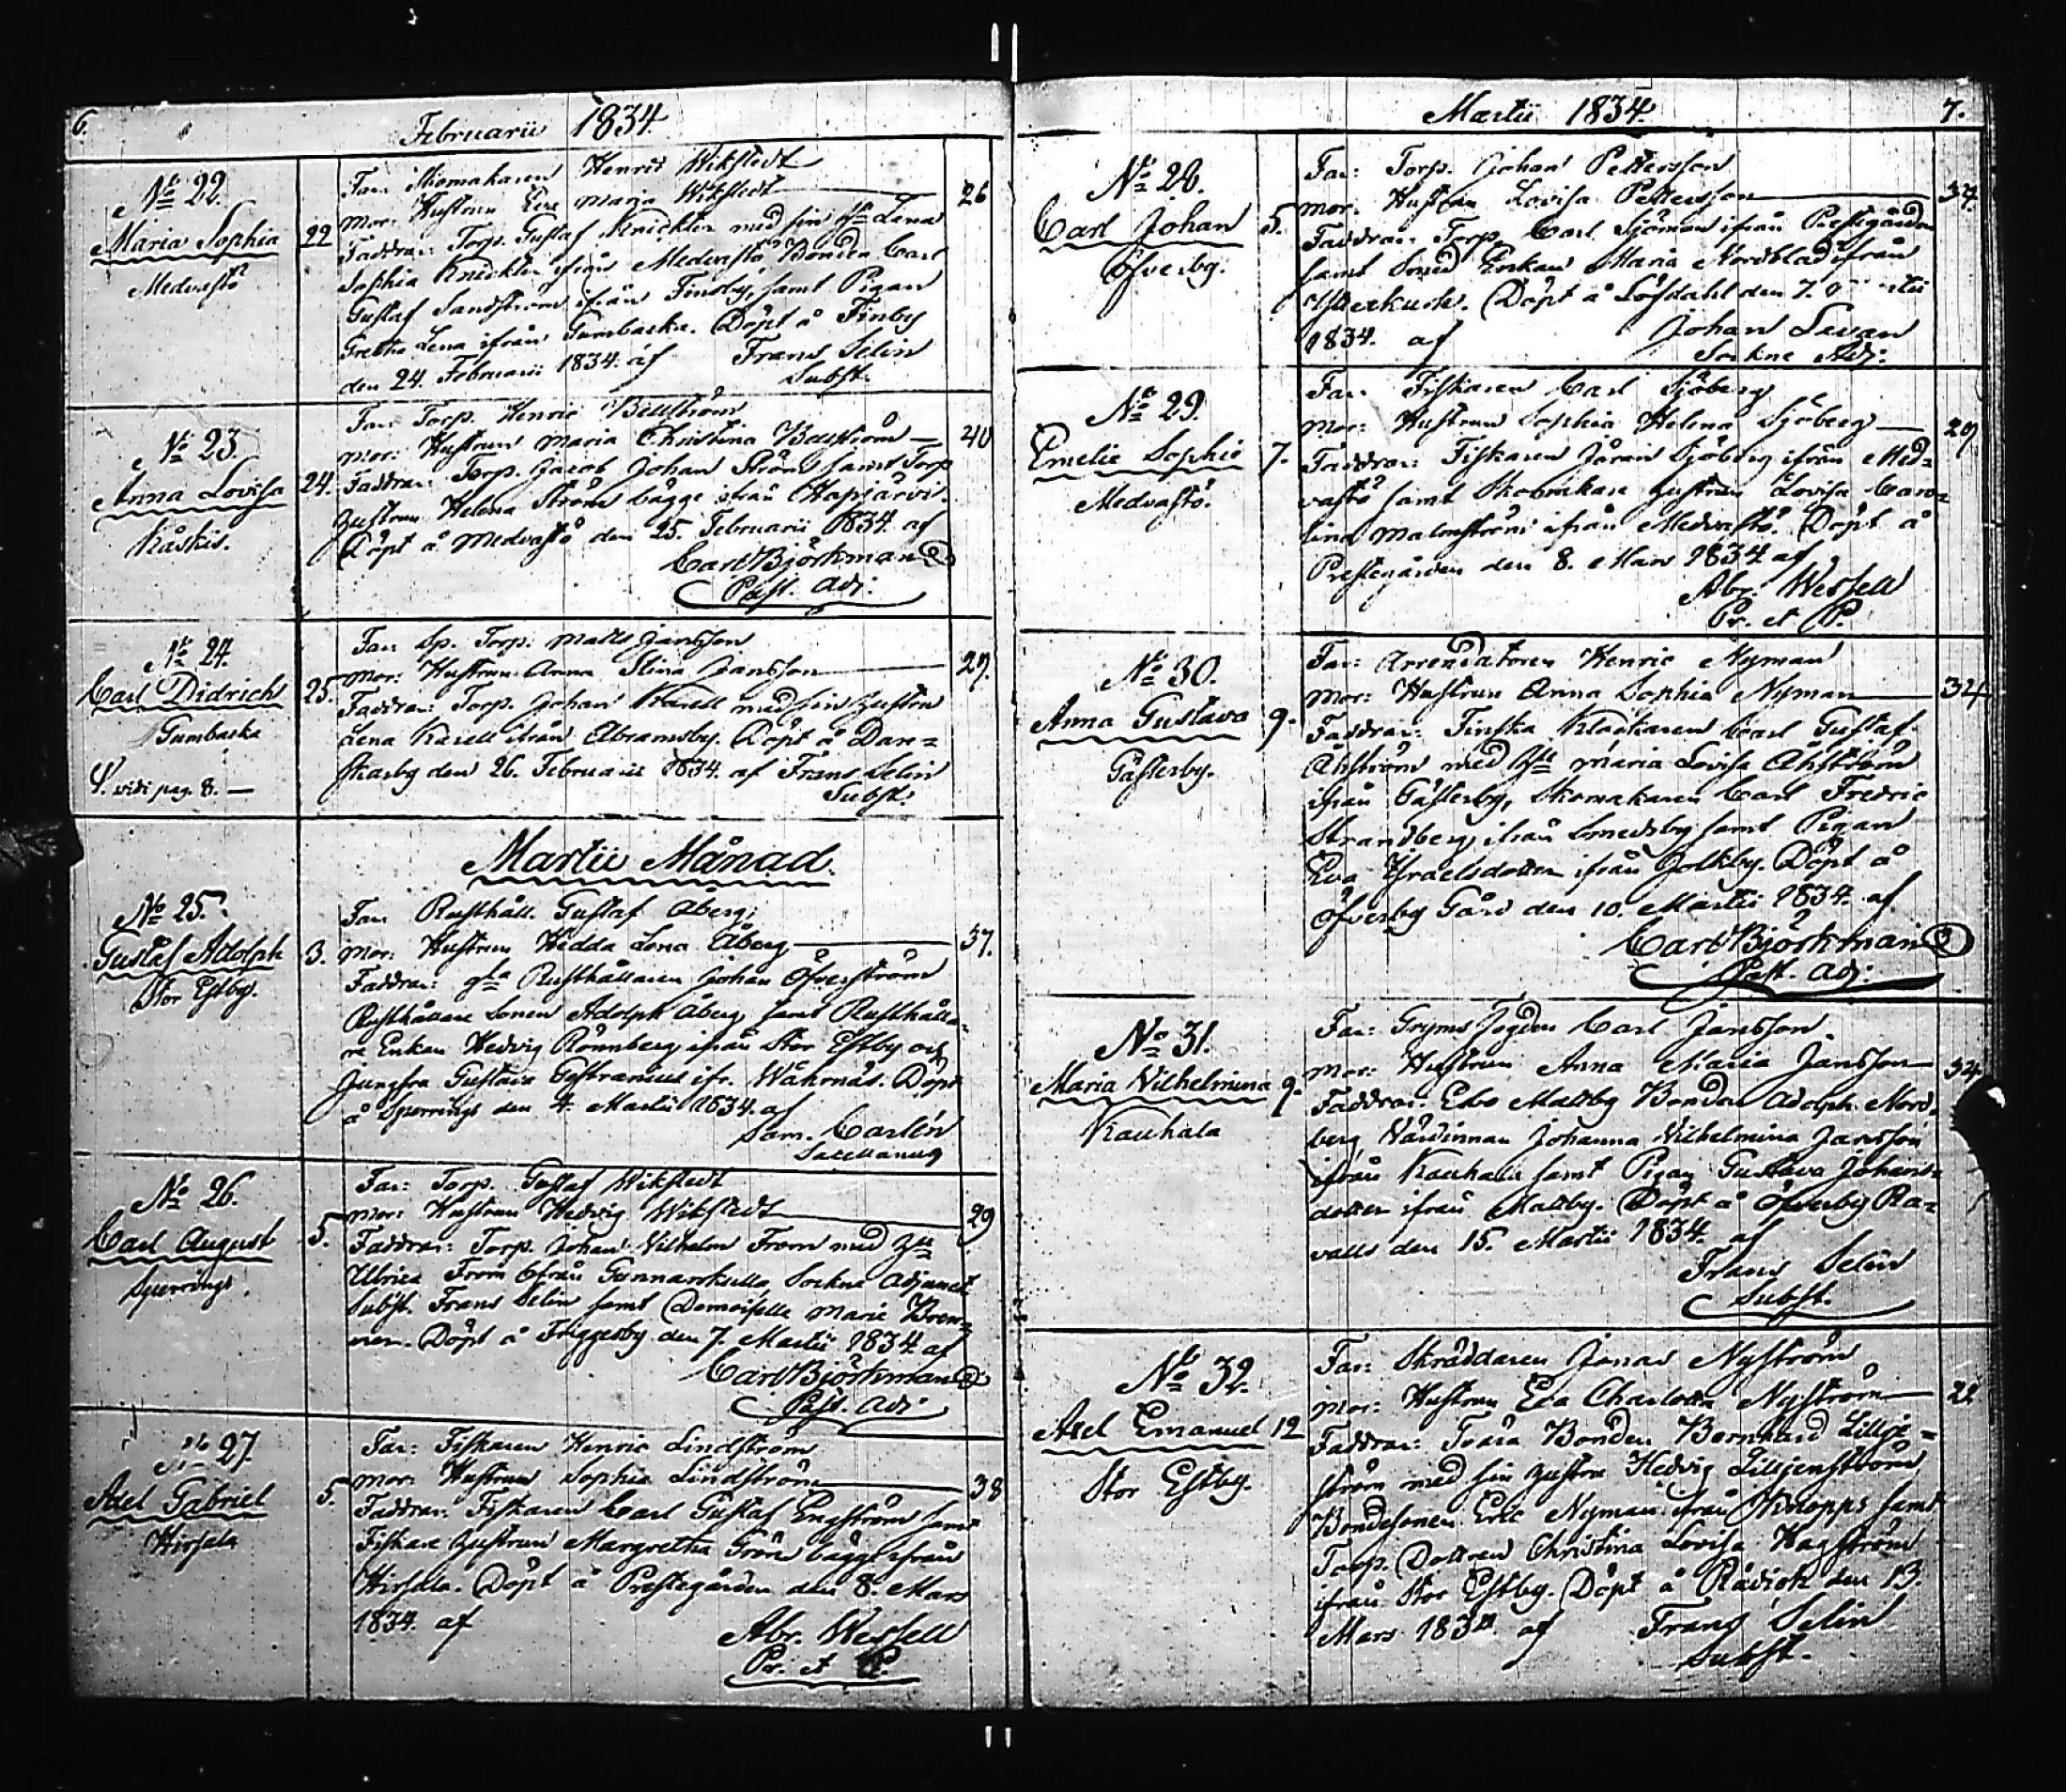 6.
Februarii 1834.
No 22.
Maria Sophia
Medvastö
22
Far: Skomakaren Henric Wikstedt
Mor: Hustrun Eva Maria Wikstedt
26
Faddrar: Torp. Gustaf Knichter med sin Hu Lena
Sophia Knichter ifrån Medvastö Bonden Carl
Gustaf Sandström ifrån Finsby, samt Pigan
Gretha Lena ifrån Gumbacka. Döpt å Finby
den 24. Februarii 1834. af Frans Selin
Subst.
No 23.
Anna Lovisa
Kåskis.
24.
Far: Torp. Henric Bellström
Mor: Hustrun Maria Christina Bellström
40
Faddrar: Torp. Jacob Johan Ström samt Torp
hustrun Helena Ström bägge ifrån Hapjärvi.
Döpt å Medvastö den 25. Februarii 1834. af
Carl Björkman
Past. Adj.
No 24.
Carl Didrich
Gumbacka
vidi pag. 8.
25.
Far: Sp. Torp. Matts Jansson
Mor: Hustrun Anna Stina Jansson
27.
Faddrar: Torp. Johan Karell med sin hustru
Lena Karell ifrån Abramsby. Döpt å Dan=
skarby den 26. Februarii 1834. af Frans Selin
Subst.
Martii Månad.
No 25.
Gustaf Adolph
Stor Estby.
3.
Far: Rusthåll. Gustaf Åberg
Mor: Hustrun Hedda Lena Åberg
37.
Faddrar: gla Rusthållaren Johan Öfverström
Rusthållare Sonen Adolph Åberg samt Rusthålla=
re Enkan Hedvig Rönnberg ifrån Stor Estby och
Jungfru Gustava ifr. Wåhrnäs. Döpt
å Sperrings den 4. Martii 1834. af
Sam. Carlén
Sacellanus
No 26.
Carl August
Sperrings.
5.
Far: Torp. Gustaf Wikstedt
Mor: Hustrun Hedvig Wikstedt
29
Faddrar: Torp. Johan Vilhelm From med Hu
Ulrica From ifrån Gunnarskulla, Sockne Adjunct
Subst. Frans Selin samt Demoiselle Marie Bron=
ner. Döpt å Friggesby den 7. Martii 1834 af
Carl Björkman
Past. Adj.
No 27.
Axel Gabriel
Hirsala
5.
Far: Fiskaren Henric Lindström
Mor: Hustrun Sophia Lindström
38
Faddrar: Fiskaren Carl Gustaf Engström samt
Fiskare hustrun Margretha Grön bägge ifrån
Hirsala. Döpt å Prestegården den 8. Mars
1834. af
Abr. Wessell
Pr. et P.
Martii 1834.
7.
No 28.
Carl Johan
Öfverby.
5.
Far: Torp. Johan Pettersson
Mor: Hustrun Lovisa Pettersson
34.
Faddrar: Torp. Carl Sjöman ifrån Prestgården
samt Smed Enkan Maria Nordblad ifrån
Döpt å Löfdahl den 7.
1834. af Johan Levan
Sockne Adj.
No 29.
Emelie Sophie
Medvastö.
7.
Far: Fiskaren Carl Sjöberg
Mor: Hustrun Sophia Helena Sjöberg
29
Faddrar: Fiskaren Göran Sjöberg ifrån Med=
vastö samt Skomakare hustrun Lovisa Caro=
lina Malmström ifrån Medvastö. Döpt å
Prestegården den 8. Mars 1834 af
Abr. Wessell
Pr. et P.
No 30.
Anna Gustava
Gästerby.
9.
Far: Arrendatoren Henric Nyman
Mor: Hustrun Anna Sophia Nyman
34
Faddrar: Finska Klockaren Carl Gustaf
Åhström med Hu Maria Lovisa Åhström
ifrån Gästerby, Skomakaren Carl Fredric
Strandberg ifrån Smedsby samt Pigan
Eva Israelsdotter ifrån Jolkby. Döpt å
Öfverby Gård den 10. Martii 1834. af
Carl Björkman
Past. Adj.
No 31.
Maria Vilhelmina
Kauhala
9.
Far: Gryms fogden Carl Jansson
Mor: Hustrun Anna Maria Jansson
34
Faddrar: Evo Mattby Bonden Adolph Nord=
berg Värdinnan Johanna Vilhelmina Jansson
ifrån Kauhala samt Pigan Gustava Johans=
dotter ifrån Mattby. Döpt å Öfverby Ra=
valls den 15. Martii 1834. af
Frans Selin
Subst.
No 32.
Axel Emanuel
Stor Estby.
12
Far: Skräddaren Jonas Nyström
Mor: Hustrun Eva Charlotta Nyström
22
Faddrar: Bonden Bernhard Lillje=
ström med sin hustru Hedvig Lilljenström
Bondesonen Eric Nyman ifrån Knopps samt
Torp. Dottren Christina Lovisa Hagström
ifrån Stor Estby. Döpt å Rävich den 13.
Mars 1834 af Frans Selin
Subst.